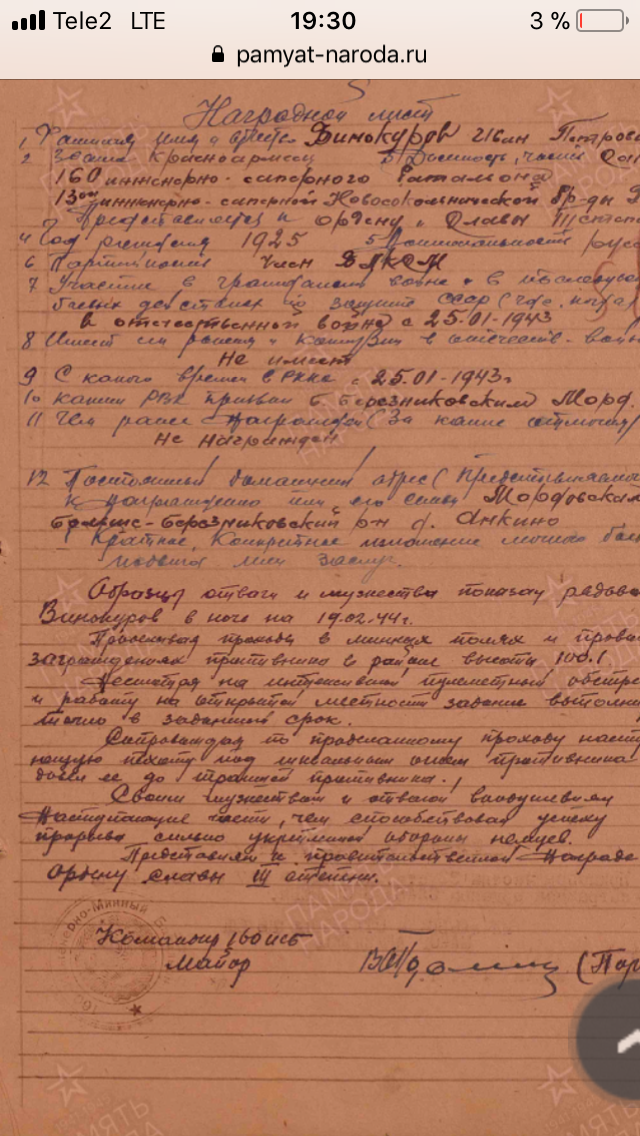 Tele2 LTE 19:30 3 %
pamyat-naroda.ru
Наградной лист
1 Фамилия имя и отчеств. Винокуров Иван Петрови
2 Звание Красноармеец 3 Должность, часть Сап
160 инженерно-саперного батальона
13ой инженерно-саперной Новосокольнической бр-ды Р
Представляется к ордену "Славы III степ
4 Год рождения 1925 5 Национальность русс
6 Партийность член ВЛКСМ
7 Участие в гражданской войне и в последую
боевых действиях по защите СССР (где, когда)
в отечественной войне с 25-01-1943
8 Имеет ли ранения и контузии в отечеств. войн
Не имеет
9 С какого времени в РККА с 25.01-1943г
10 каким РВК призван Б Березниковским Морд.
11 Чем ранее награжден (за какие отличия)
не награжден
12 Постоянный домашний адрес (представляемо
к награждению или его семьи Мордовская
Больше-Березниковский р-он д. Анкино
Краткое, конкретное изложение личного бое
подвига или заслуг.
Образцы отваги и мужества показал рядово
Винокуров в ночь на 19.02.44г.
Проделывая проходы в минных полях и прово
заграждениях противника в районе высоты 100.1
Несмотря на интенсивный пулеметный обстре
и работу на открытой местности задание выполни
точно в заданный срок.
Сопровождая по проделанному проходу насту
пающую пехоту под сильным огнем противника
довел ее до траншей противника.
Своим мужеством и отвагой воодушевлял
наступающие части, чем способствовал успеху
прорыва сильно укрепленной обороны немцев.
Представлен к правительственной награде
Ордену Славы III степени.
Командир 160 исб
Майор (Пор
ПАМЯТЬ
НАРОДА